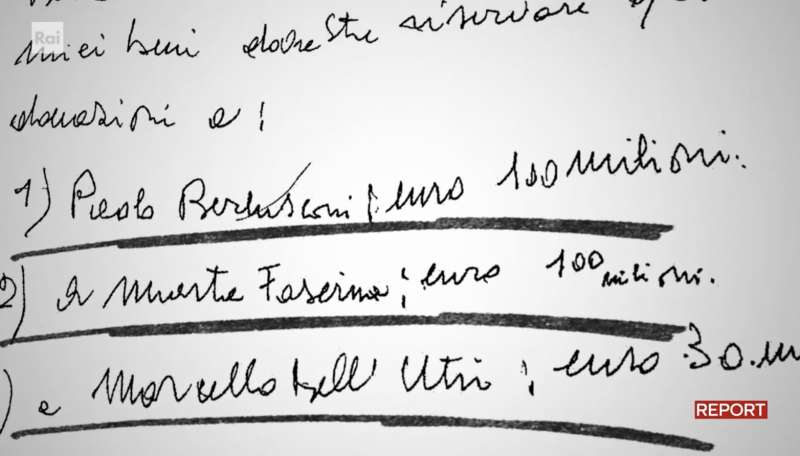 Rai 1
miei beni dovreste riservare
donazioni a:
1) Paolo Berlusconi; euro 100 milioni.
2) a Marta Fascina; euro 100 milioni.
) a Marcello Dell' Utri; euro 30. m
REPORT